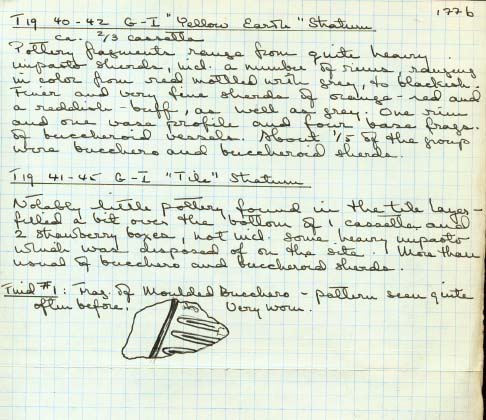 177b
T19 40-42 G-I "Yellow Earth" Stratum
ca. 2/3 cassetta
Pottery fragments range from quite heavy
impasto sherds, incl. a number of rims ranging
in color from red mottled with grey, to blackish.
Finer and very fine sherds of orange-red and
a reddish-buff, as well as grey. One rim
and one vase profile and four base frags.
of buccheroid vessels. About 1/5 of the group
were bucchero and buccheroid sherds.
T19 41-45 G-I "Tile" Stratum
Notably little pottery found in the tile layer-
filled a bit over the bottom of 1 cassetta and
2 strawberry boxes, not incl. some heavy impasto
which was disposed of on the site. More than
usual of bucchero and buccheroid sherds.
Find #1: Frag. of Moulded Bucchero - pattern seen quite
often before. Very worn.